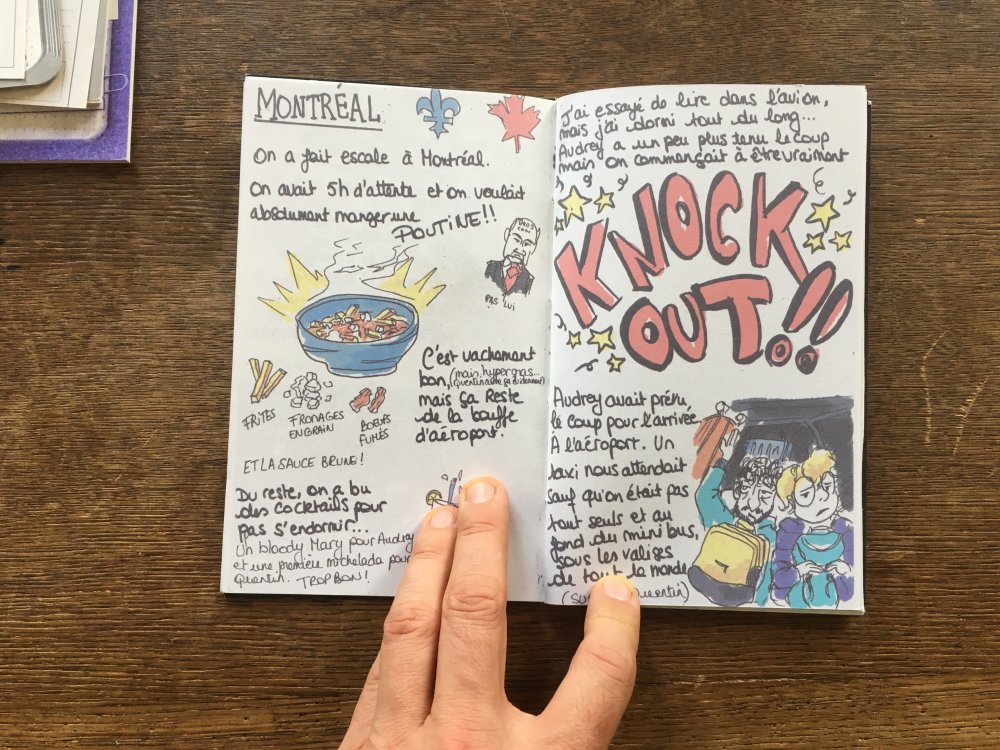 MONTRÉAL
On a fait escale à Montréal.
On avait 5h d'attente et on voulait
absolument manger une
POUTINE!!
PAS LUI
FRITES
FROMAGES
EN GRAIN
BOEUFS
FUMÉS
ET LA SAUCE BRUNE!
C'est vachement
bon, (mais hyper gras...
quentin aime ça évidemment)
mais ça Reste
de la bouffe
d'aéroport.
Du reste, on a bu
des cocktails pour
pas s'endormir...
Un bloody Mary pour Audrey
et une première michelada pour
quentin. TROP BON!
J'ai essayé de lire dans l'avion,
mais j'ai dormi tout du long...
Audrey a un peu plus tenu le coup
mais on commençait à être vraiment
KNOCK
OUT!!
Audrey avait prévu
le coup pour l'arrivée
À l'aéroport. Un
taxi nous attendait
sauf qu'on était pas
tout seuls et au
fond du mini bus,
sous les valises
de tout le monde
(su quentin)